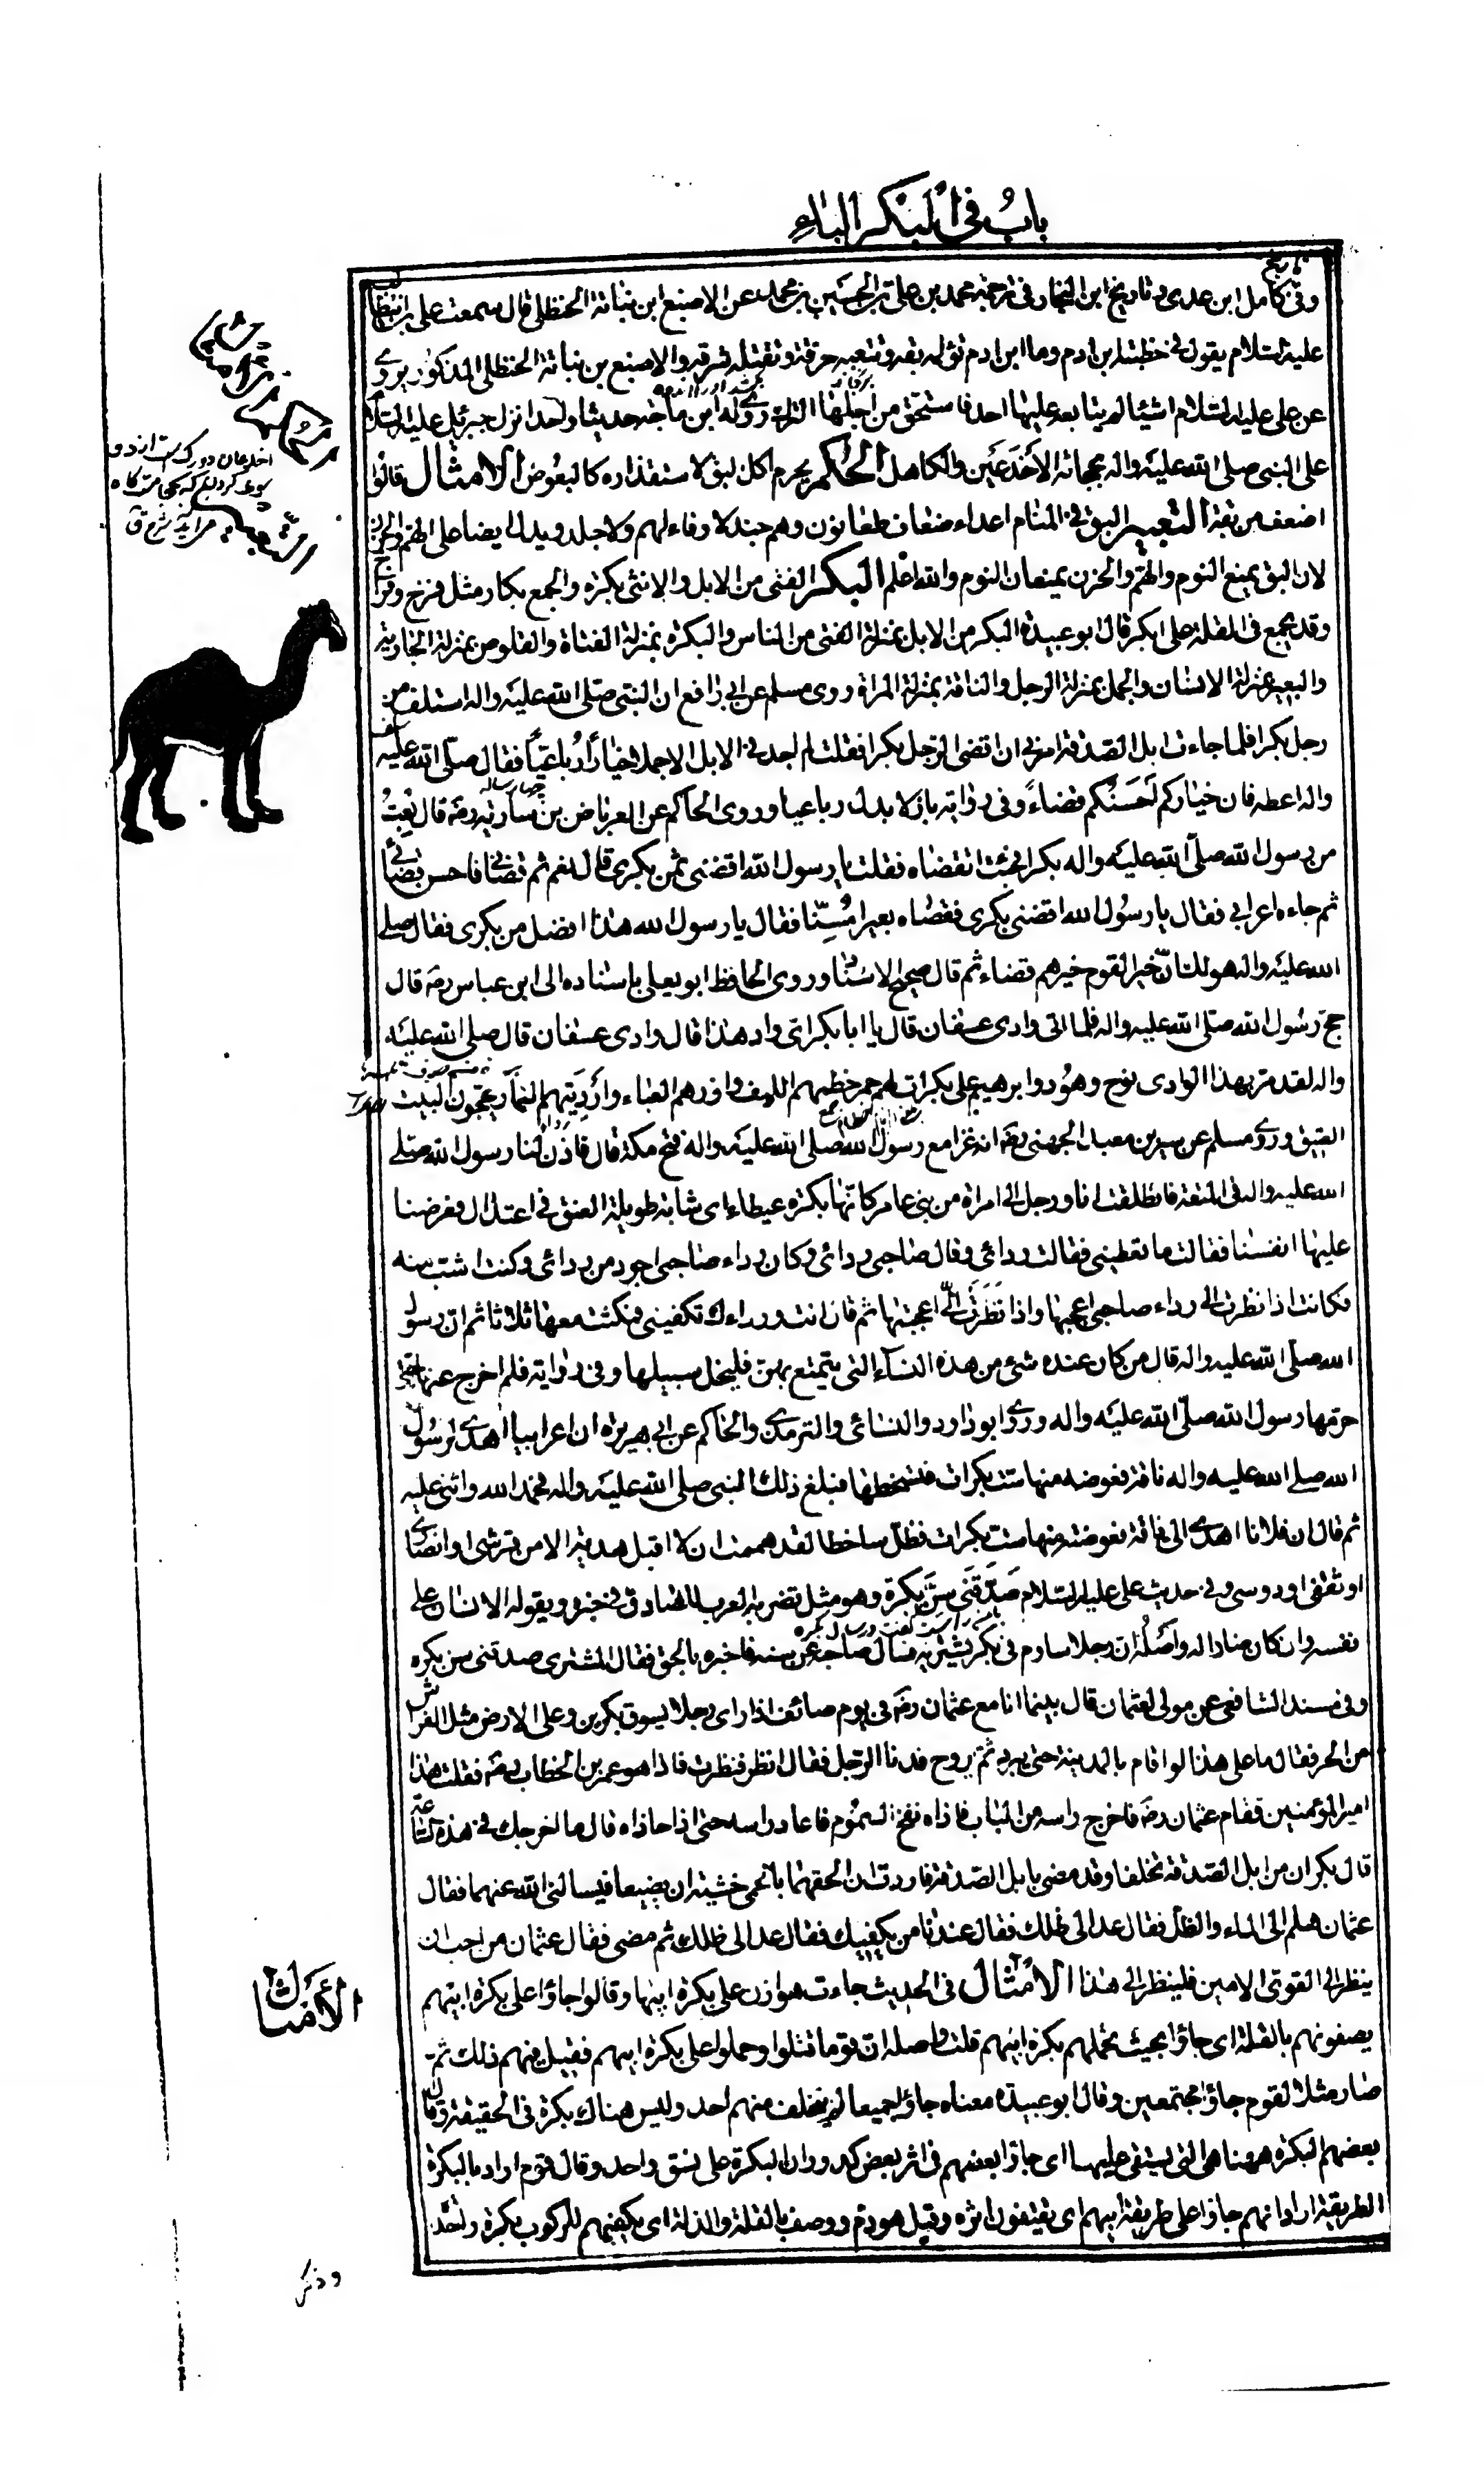 باب في البكر الباء
تاريخ
وفي كامل ابن عدي وتاريخ ابن النجار في ترجمة محمد بن علي بن الحسين بن محمد عن الاصبغ ابن نباتة الحنظلي قال سمعت علي بن ابيطالب
عليه السلام يقول في خطبته ابن ادم وما ابن ادم تؤلمه بقه وتنتنه عرقة وتقتله شرقه والاصبغ بن نباتة الحنظلي المذكور يروي
عن علي عليه السلام اشياء لم يتابعه عليها احد فاستحق من اجلها الترك روى له ابن ماجه حديثا واحدا نزل جبرئيل عليه السلام
على النبي صلى الله عليه واله بحجامة الاخدعين والكاهل الحكم يحرم اكل البق لاستقذاره كالبعوض الامثال قالوا
اضعف من بقة التعبير البق في المنام اعداء ضعاف طعانون وهم جند لا وفاء لهم ولا جلد ويدل ايضا على الهم والحزن
لان البق يمنع النوم والهم والحزن يمنعان النوم والله اعلم البكر الفتى من الابل والانثى بكرة والجمع بكار مثل فرخ وفراخ
وقد يجمع في القلة على ابكر قال ابو عبيدة البكر من الابل بمنزلة الفتى من الناس والبكرة بمنزلة الفتاة والقلوص بمنزلة الجارية
والبعير بمنزلة الانسان والجمل بمنزلة الرجل والناقة بمنزلة المراة روى مسلم عن ابي رافع ان النبي صلى الله عليه واله استلف من
رجل بكرا فلما جاءت ابل الصدقة امرني ان اقضى الرجل بكرا فقلت لم اجد في الابل الا جملا خيارا رباعيا فقال صلى الله عليه
واله اعطه فان خياركم احسنكم قضاء وفي رواية بازلا بدل رباعيا وروى الحاكم عن العرباض بن سارية رضه قال بعت
من رسول الله صلى الله عليه واله بكرا فجئت اتقضاه فقلت يا رسول الله اقضني ثمن بكري قال نعم ثم قضاني فاحسن قضائي
ثم جاءه اعرابي فقال يا رسول الله اقضني بكري فقضاه بعيرا مسنا فقال يا رسول الله هذا افضل من بكري فقال صلى
الله عليه واله هو لك ان خير القوم خيرهم قضاء ثم قال صحيح الاسناد وروى الحافظ ابو يعلى باسناده الى ابن عباس رضه قال
حج رسول الله صلى الله عليه واله فلما اتى وادى عسفان قال يا ابا بكر اي واد هذا قال وادى عسفان قال صلى الله عليه
واله لقد مر بهذا الوادى نوح وهود وابرهيم على بكرات لهم حمر خطمهم الليف وازرهم العباء وارديتهم النمار يحجون البيت
العتيق وروى مسلم عن سبرة بن معبد الجهني رضه انه غزا مع رسول الله صلى الله عليه واله فتح مكة قال فاذن لنا رسول الله صلى
الله عليه واله في المتعة فانطلقت انا ورجل الى امراة من بني عامر كانها بكرة عيطاء اي شابة طويلة العنق في اعتدال فعرضنا
عليها انفسنا فقالت ما تعطيني فقالت ردائي وقال صاحبي ردائي وكان رداء صاحبي اجود من ردائي وكنت اشب منه
فكانت اذا نظرت الى رداء صاحبي اعجبها واذا نظرت الى اعجبتها ثم قالت انت ورداءك تكفيني فمكثت معها ثلاثا ثم ان رسول
الله صلى الله عليه واله قال من كان عنده شئ من هذه النساء التي يتمتع بهن فليخل سبيلها وفي رواية فلم اخرج عنها حتى
حرمها رسول الله صلى الله عليه واله وروى ابو داود والنسائي والترمذي والحاكم عن ابي هريرة ان اعرابيا اهدى لرسول
الله صلى الله عليه واله ناقة فعوضه منها ست بكرات فتسخطها فبلغ ذلك النبي صلى الله عليه واله فحمد الله واثنى عليه
ثم قال ان فلانا اهدى الى ناقة فعوضته منها ست بكرات فظل ساخطا لقد هممت ان لا اقبل هدية الا من قرشي او انصاري
او ثقفي او دوسي وفي حديث علي عليه السلام صدقني سن بكره وهو مثل تضربه العرب للصادق في خبره ويقوله الانسان على
نفسه وان كان ضارا له واصله ان رجلا ساوم في بكر يشتريه فسال صاحبه عن سنه فاخبره بالحق فقال المشترى صدقني سن بكره
وفي مسند الشافعي عن مولى لعثمان قال بينما انا مع عثمان رضه في يوم صائف اذ راى رجلا يسوق بكرين وعلى الارض مثل الفراش
من الحر فقال ما على هذا لو اقام بالمدينة حتى يبرد ثم يروح فدنا الرجل فقال انظر فنظرت فاذا هو عمر بن الخطاب رضه فقلت هذا
امير المؤمنين فقام عثمان رضه فاخرج راسه من الباب فاذاه نفح السموم فاعاد راسه حتى اذا حاذاه قال ما اخرجك في هذه الساعة
قال بكران من ابل الصدقة تخلفا وقد مضى بابل الصدقة فاردت ان الحقهما بالحمى خشية ان يضيعا فيسالني الله عنهما فقال
عثمان هلم الى الماء والظل فقال عد الى ظلك فقال عندنا من يكفيك فقال عد الى ظلك ثم مضى فقال عثمان من احب ان
ينظر الى القوى الامين فلينظر الى هذا الامثال في الحديث جاءت هوازن على بكرة ابيها وقالوا جاؤا على بكرة ابيهم
يصفونهم بالقلة اي جاؤا بحيث تحملهم بكرة ابيهم قلت واصله ان قوما قتلوا وحملوا على بكرة ابيهم فقيل فيهم ذلك ثم
صار مثلا لقوم جاؤا مجتمعين وقال ابو عبيدة معناه جاؤا جميعا لم يتخلف منهم احد وليس هناك بكرة في الحقيقة وقال
بعضهم البكرة ههنا هي التي يستقى عليها اي جاؤا بعضهم في اثر بعض كدوران البكرة على نسق واحد وقال قوم اراد بالبكرة
الطريقة ارادوا انهم جاؤا على طريقة ابيهم اي يقتفون اثره وقيل هو ذم ووصف بالقلة والذلة اي يكفيهم للركوب بكرة واحدة
التعبير
الامثال
وذكر